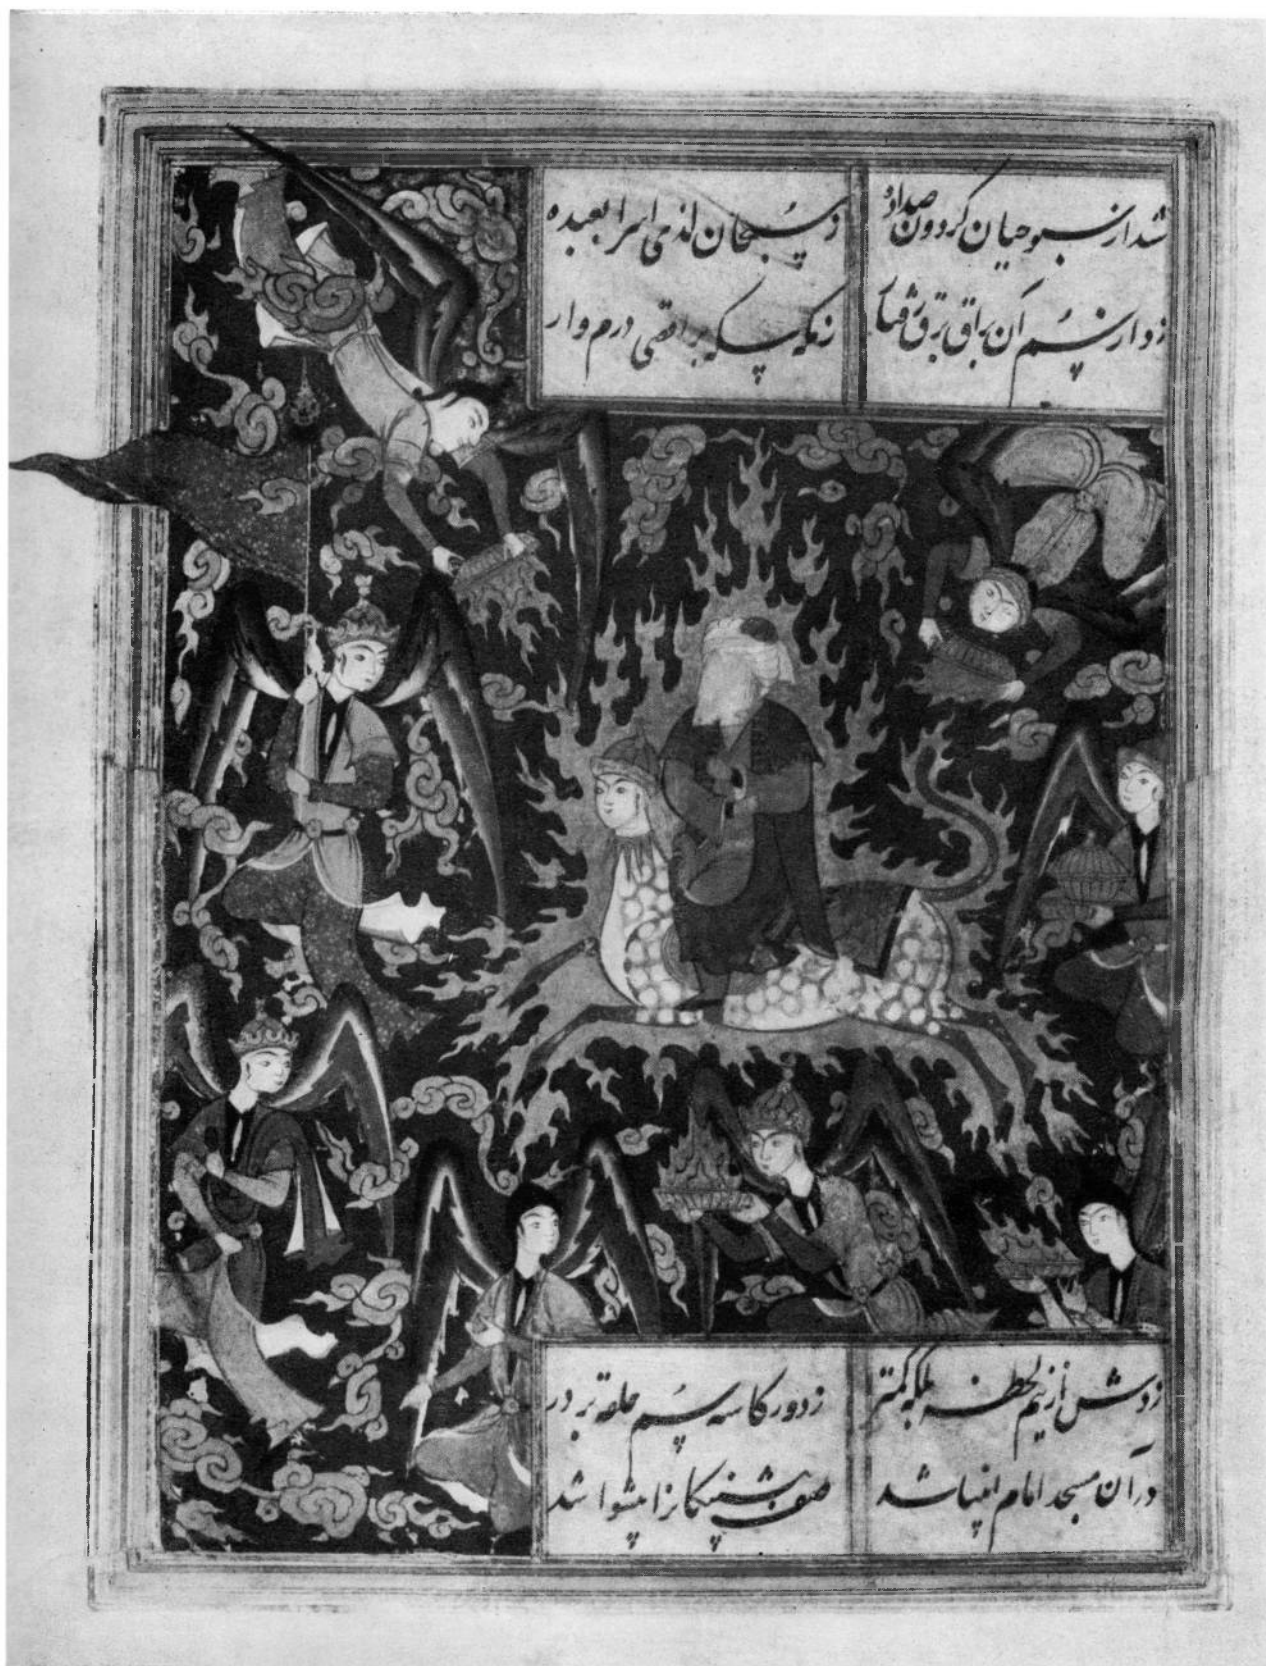 شد از سبوحیان گردون صدا ده سبحان لذی اسرا بعبده
زد از سم آن براق برق رفتار ز مکه سکه بر اقصی درم وار
زدش از نیم لحظه بلکه کمتر ز دور کاسه سم حلقه بر در
در آن مسجد امام انبیا شد صف پیشینگانرا پیشوا شد